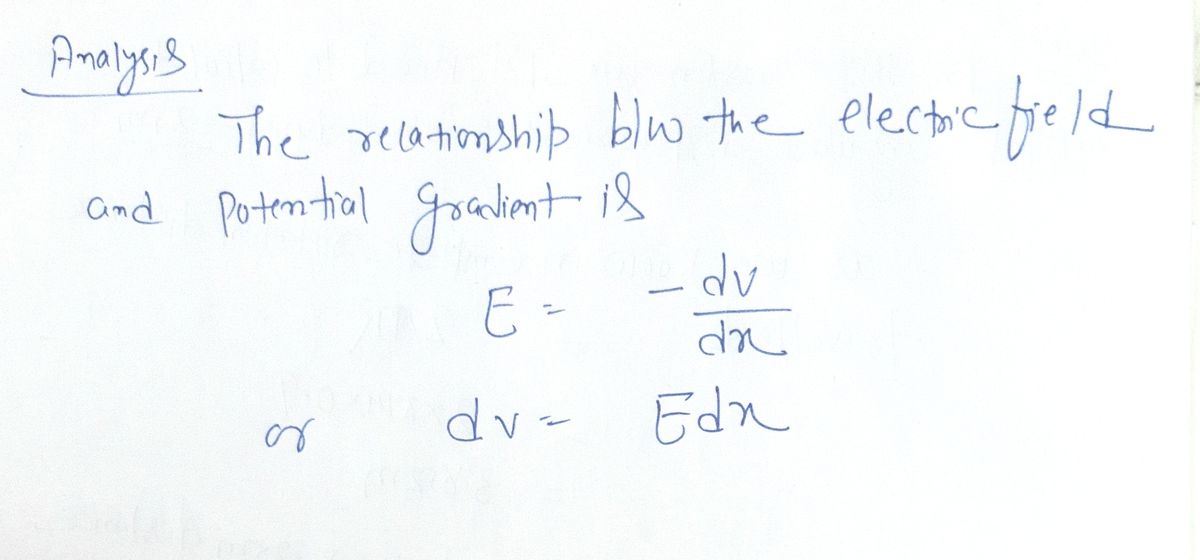 Analysis
The relationship b/w the electric field
and potential gradient is
E = - dv
dx
or dv = Edx